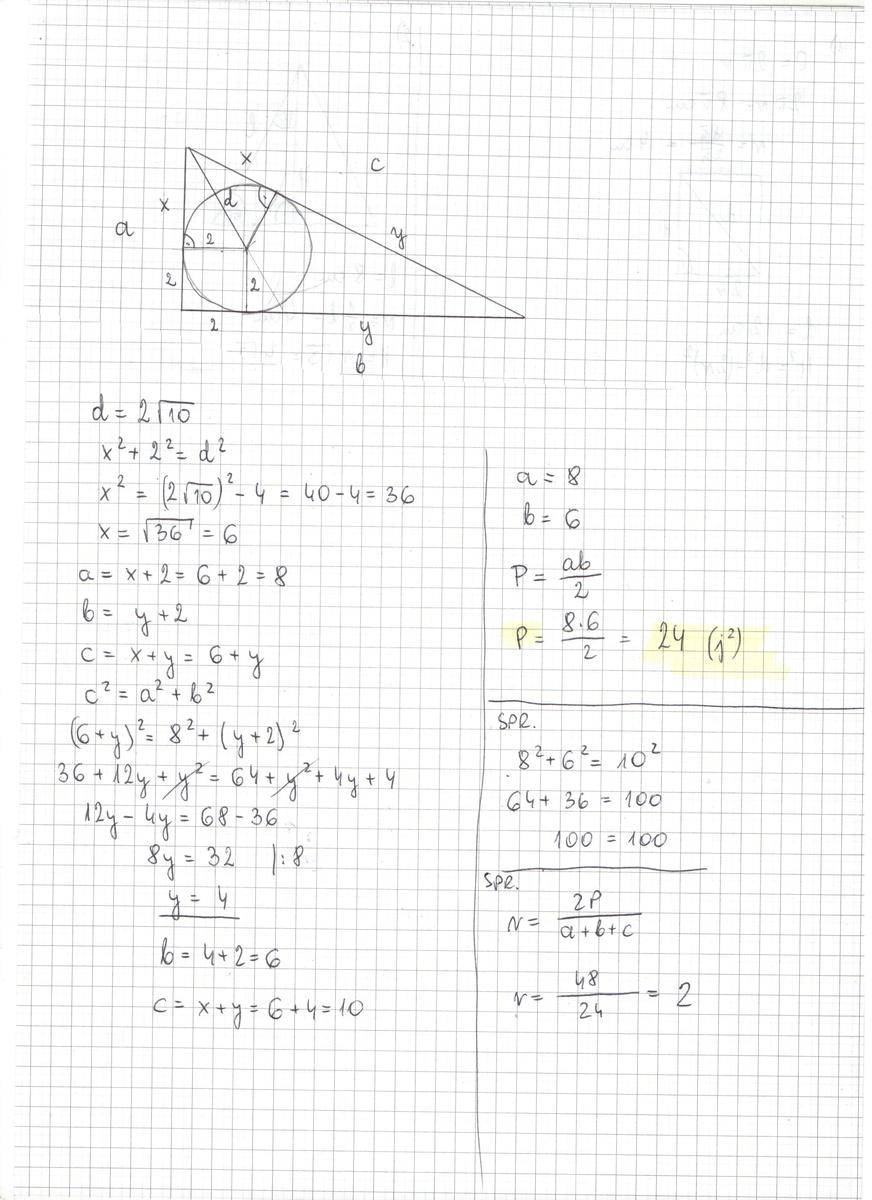 x
c
x
d
a
2
y
2
2
2
y
b
d = 2√10
x² + 2² = d²
x² = (2√10)² - 4 = 40 - 4 = 36
x = √36 = 6
a = x + 2 = 6 + 2 = 8
b = y + 2
c = x + y = 6 + y
c² = a² + b²
(6+y)² = 8² + (y+2)²
36 + 12y + y² = 64 + y² + 4y + 4
12y - 4y = 68 - 36
8y = 32 |:8
y = 4
b = 4 + 2 = 6
c = x + y = 6 + 4 = 10
a = 8
b = 6
P = ab/2
P = 8·6/2 = 24 (j²)
SPR.
8² + 6² = 10²
64 + 36 = 100
100 = 100
SPR.
r = 2P/a+b+c
r = 48/24 = 2